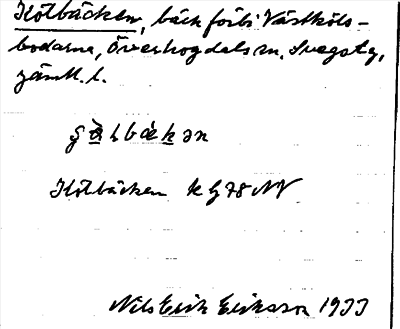 Kölbäcken, bäck förbi Västköls-
bodarna, Överhogdals sn, Svegs tg,
Jämtl. l.
Kölbäcken kg 78 NV
Nils Erik Eriksson 1933